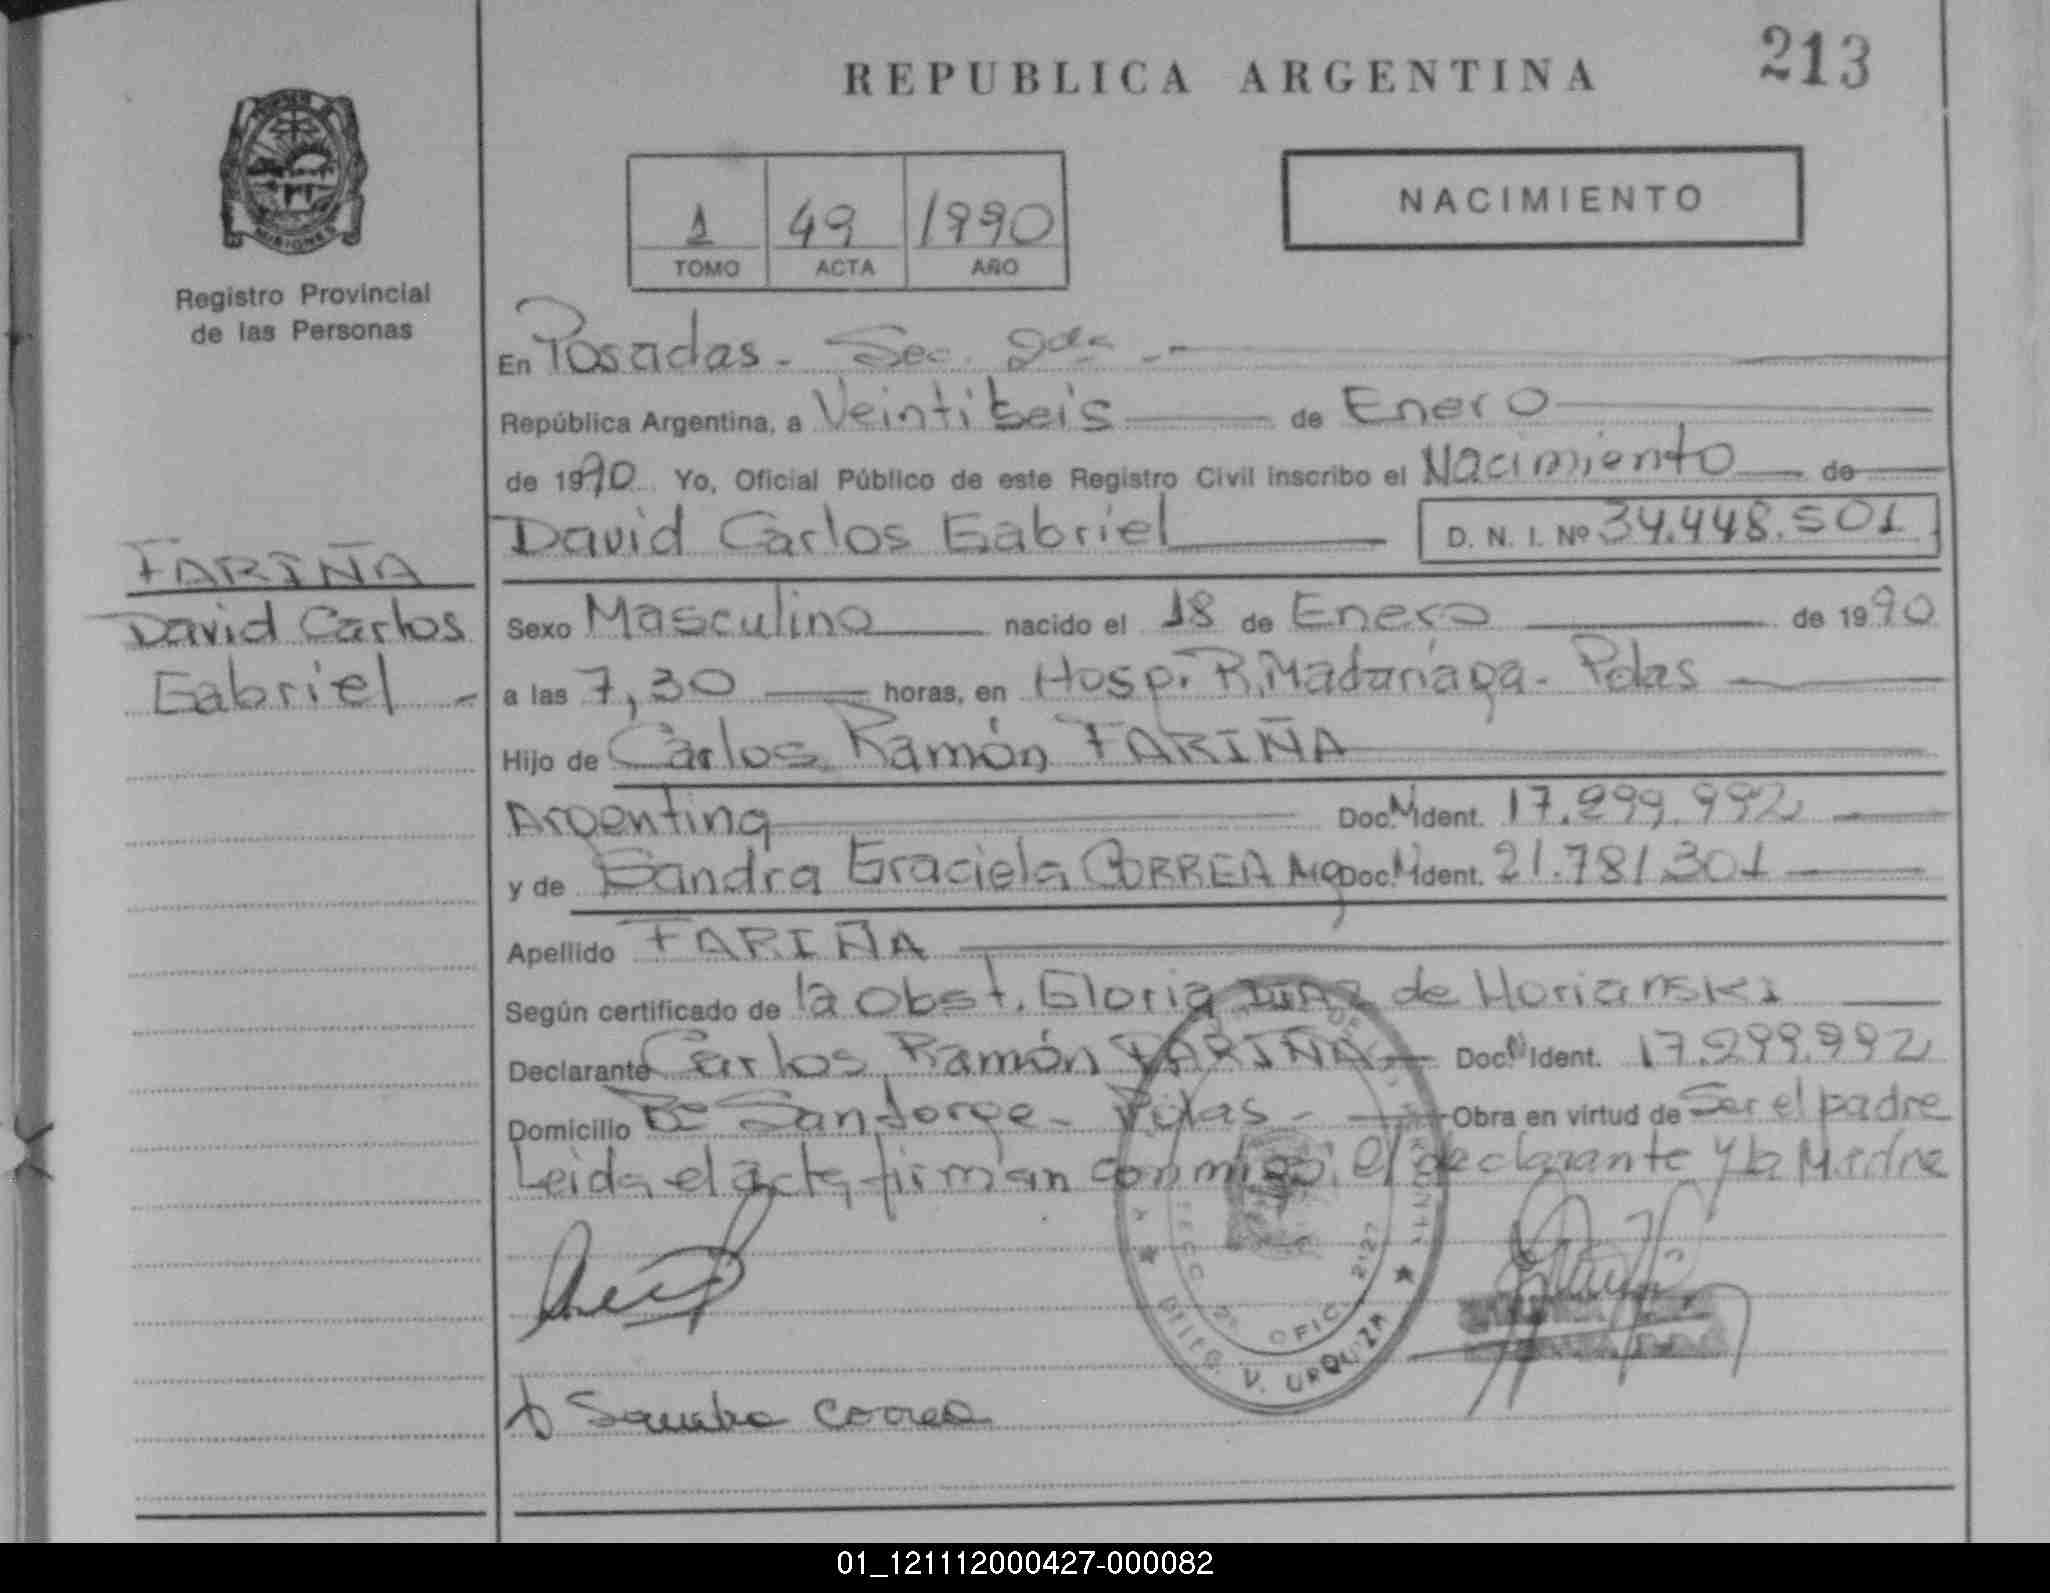 REPUBLICA ARGENTINA
213
MISIONES
Registro Provincial
de las Personas
1 49 1990
TOMO ACTA AÑO
NACIMIENTO
FARIÑA
David Carlos
Gabriel
En Posadas - Sec. 2da -
República Argentina, a Veintiseis de Enero
de 1990 Yo, Oficial Público de este Registro Civil inscribo el Nacimiento de
David Carlos Gabriel D. N. I. Nº 34.448.501
Sexo Masculino nacido el 18 de Enero de 1990
a las 7,30 horas, en Hosp. R. Madariaga - Pdas
Hijo de Carlos Ramón FARIÑA
Argentina Doc. Ident. 17.299.992
y de Sandra Graciela CORREA Arg Doc. Ident. 21.781.301
Apellido FARIÑA
Según certificado de la Obst. Gloria DIAZ de Horianski
Declarante Carlos Ramón FARIÑA Doc. Ident. 17.299.992
Domicilio Bº San Jorge - Pdas - Obra en virtud de Ser el padre
Leida el acta, firman conmigo, el declarante y la Madre
SECC. 2ª OFIC. 2127
V. URQUIZA
Sandra Correa
01_121112000427-000082